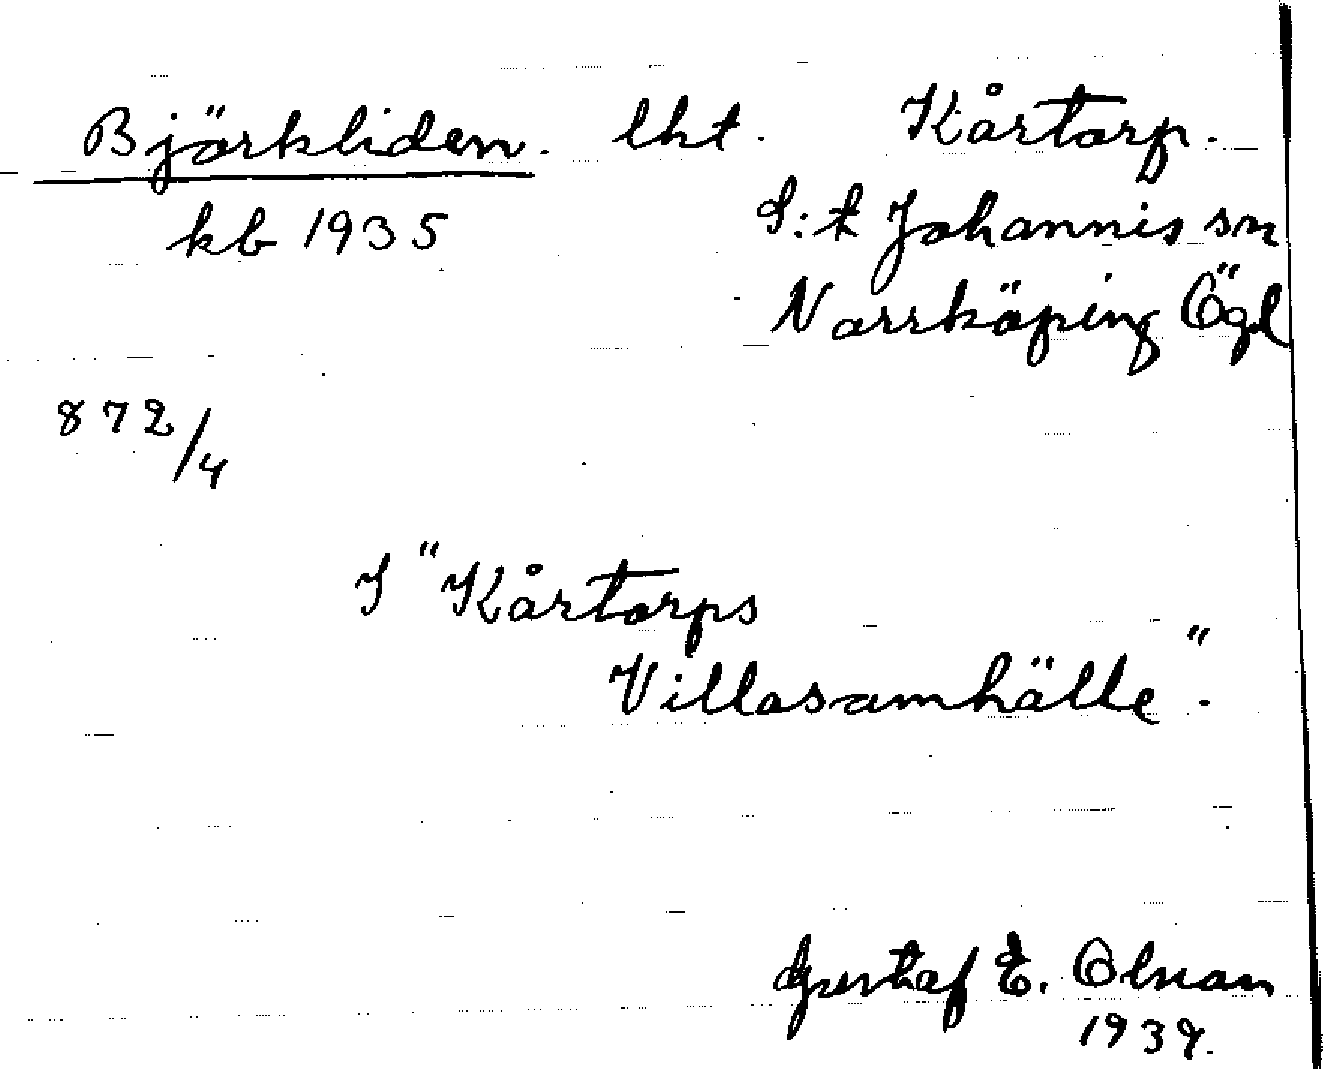 Björkliden. lht. Kårtorp.
kb 1935 S:t Johannis sn
Norrköping Ögl
872/4
I "Kårtorps
Villasamhälle".
Gustaf E. Olson
1939.